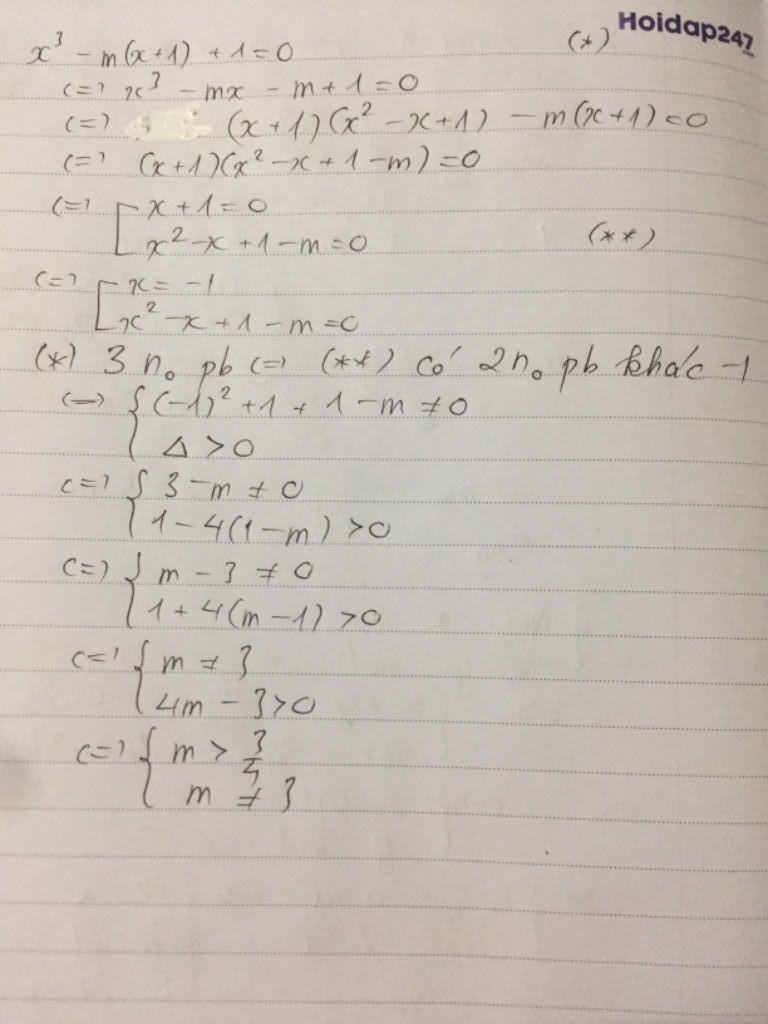 Hoidap247
x³ - m(x+1) + 1 = 0 (*)
<=> x³ - mx - m + 1 = 0
<=> (x+1)(x² - x + 1) - m(x+1) = 0
<=> (x+1)(x² - x + 1 - m) = 0
<=> [ x + 1 = 0
x² - x + 1 - m = 0 (**)
<=> [ x = -1
x² - x + 1 - m = 0
(*) 3 n₀ pb <=> (**) có 2 n₀ pb khác -1
<=> { (-1)² + 1 + 1 - m ≠ 0
Δ > 0
<=> { 3 - m ≠ 0
1 - 4(1 - m) > 0
<=> { m - 3 ≠ 0
1 + 4(m - 1) > 0
<=> { m ≠ 3
4m - 3 > 0
<=> { m > 3/4
m ≠ 3